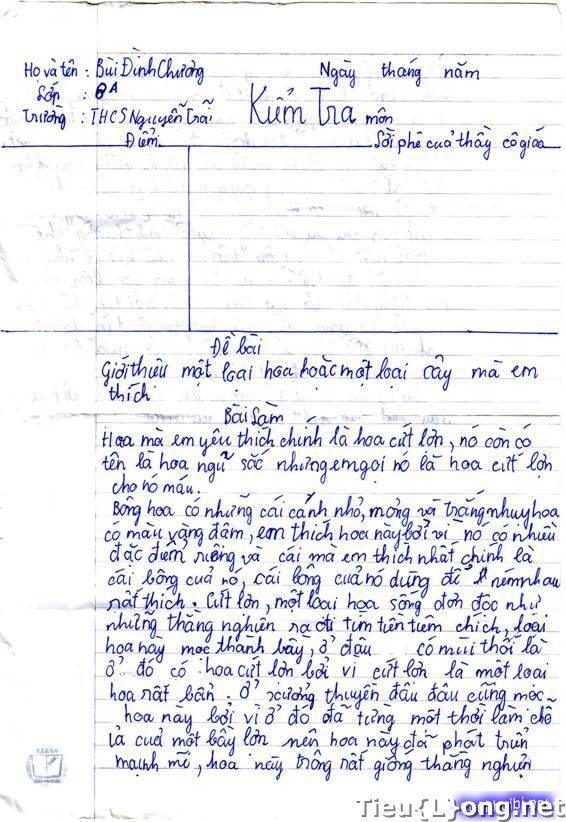 Họ và tên : Bùi Đình Chương
Ngày tháng năm
Lớp : 8A
Trường : THCS Nguyễn Trãi
Kiểm Tra môn
Điểm
Lời phê của thầy cô giáo
Đề bài
Giới thiệu một loại hoa hoặc một loại cây mà em
thích
Bài Làm
Hoa mà em yêu thích chính là hoa cứt lợn, nó còn có
tên là hoa ngũ sắc nhưng em gọi nó là hoa cứt lợn
cho nó máu.
Bông hoa có những cái cánh nhỏ, mỏng và trắng nhuỵ hoa
có màu vàng đậm, em thích hoa này bởi vì nó có nhiều
đặc điểm riêng và cái mà em thích nhất chính là
cái bông của nó, cái bông của nó dùng để ném nhau
rất thích. Cứt lợn, một loại hoa sống đơn độc như
những thằng nghiện ra đi tìm tiền tiêm chích, loài
hoa này mọc thành bầy, ở đâu có mùi thối là
ở đó có hoa cứt lợn bởi vì cứt lợn là một loại
hoa rất bẩn. Ở xưởng thuyền đâu đâu cũng mọc
hoa này bởi vì ở đó đã từng một thời làm chỗ
ỉa của một bầy lợn nên hoa này đã phát triển
mạnh mẽ, hoa này trông rất giống thằng nghiện
Tieu{L}ong.net